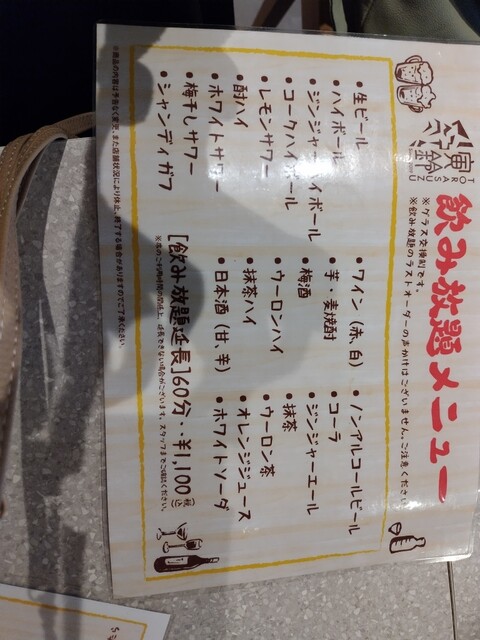 TOROUSAZU
飲み放題メニュー
※グラス交換制です。
※飲み放題のラストオーダーの声かけはございません。ご注意ください
・生ビール
・ハイボール
・ジンジャーハイボール
・コークハイボール
・レモンサワー
・酎ハイ
・ホワイトサワー
・梅干しサワー
・シャンディガフ
・ワイン(赤、白)
・芋・麦焼酎
・梅酒
・ウーロンハイ
・抹茶ハイ
・日本酒(甘、辛)
・ノンアルコールビール
・コーラ
・ジンジャーエール
・抹茶
・ウーロン茶
・オレンジジュース
・ホワイトソーダ
[飲み放題延長]60分・・¥1,100(税込)
※席のご利用時間の関係上、延長できない場合がございます。スタッフまでご確認ください。
※商品の内容は予告なく変更、また店舗状況により休止、終了する場合がありますのでご了承ください。